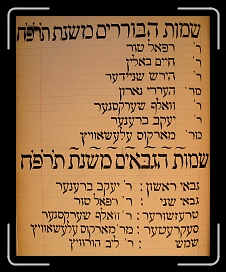 שמות הבוררים משנת תרפ״ח
ר׳ רפאל טור
ר׳ חיים באלין
ר׳ הירש שניידער
מר׳ הערי נארון
ר׳ וואלף שערקסנער
ר׳ יעקב ברענער
מר׳ מארקוס עלעשאוויץ
שמות הגבאים משנת תרפ״ח
גבאי ראשון : ר׳ יעקב ברענער
גבאי שני : ר׳ רפאל טור
טרעזשורער : ר׳ וואלף שערקסנער
סעקרעטער : מר׳ מארקוס עלעשאוויץ
שמש : ר׳ ליב הורוויץ